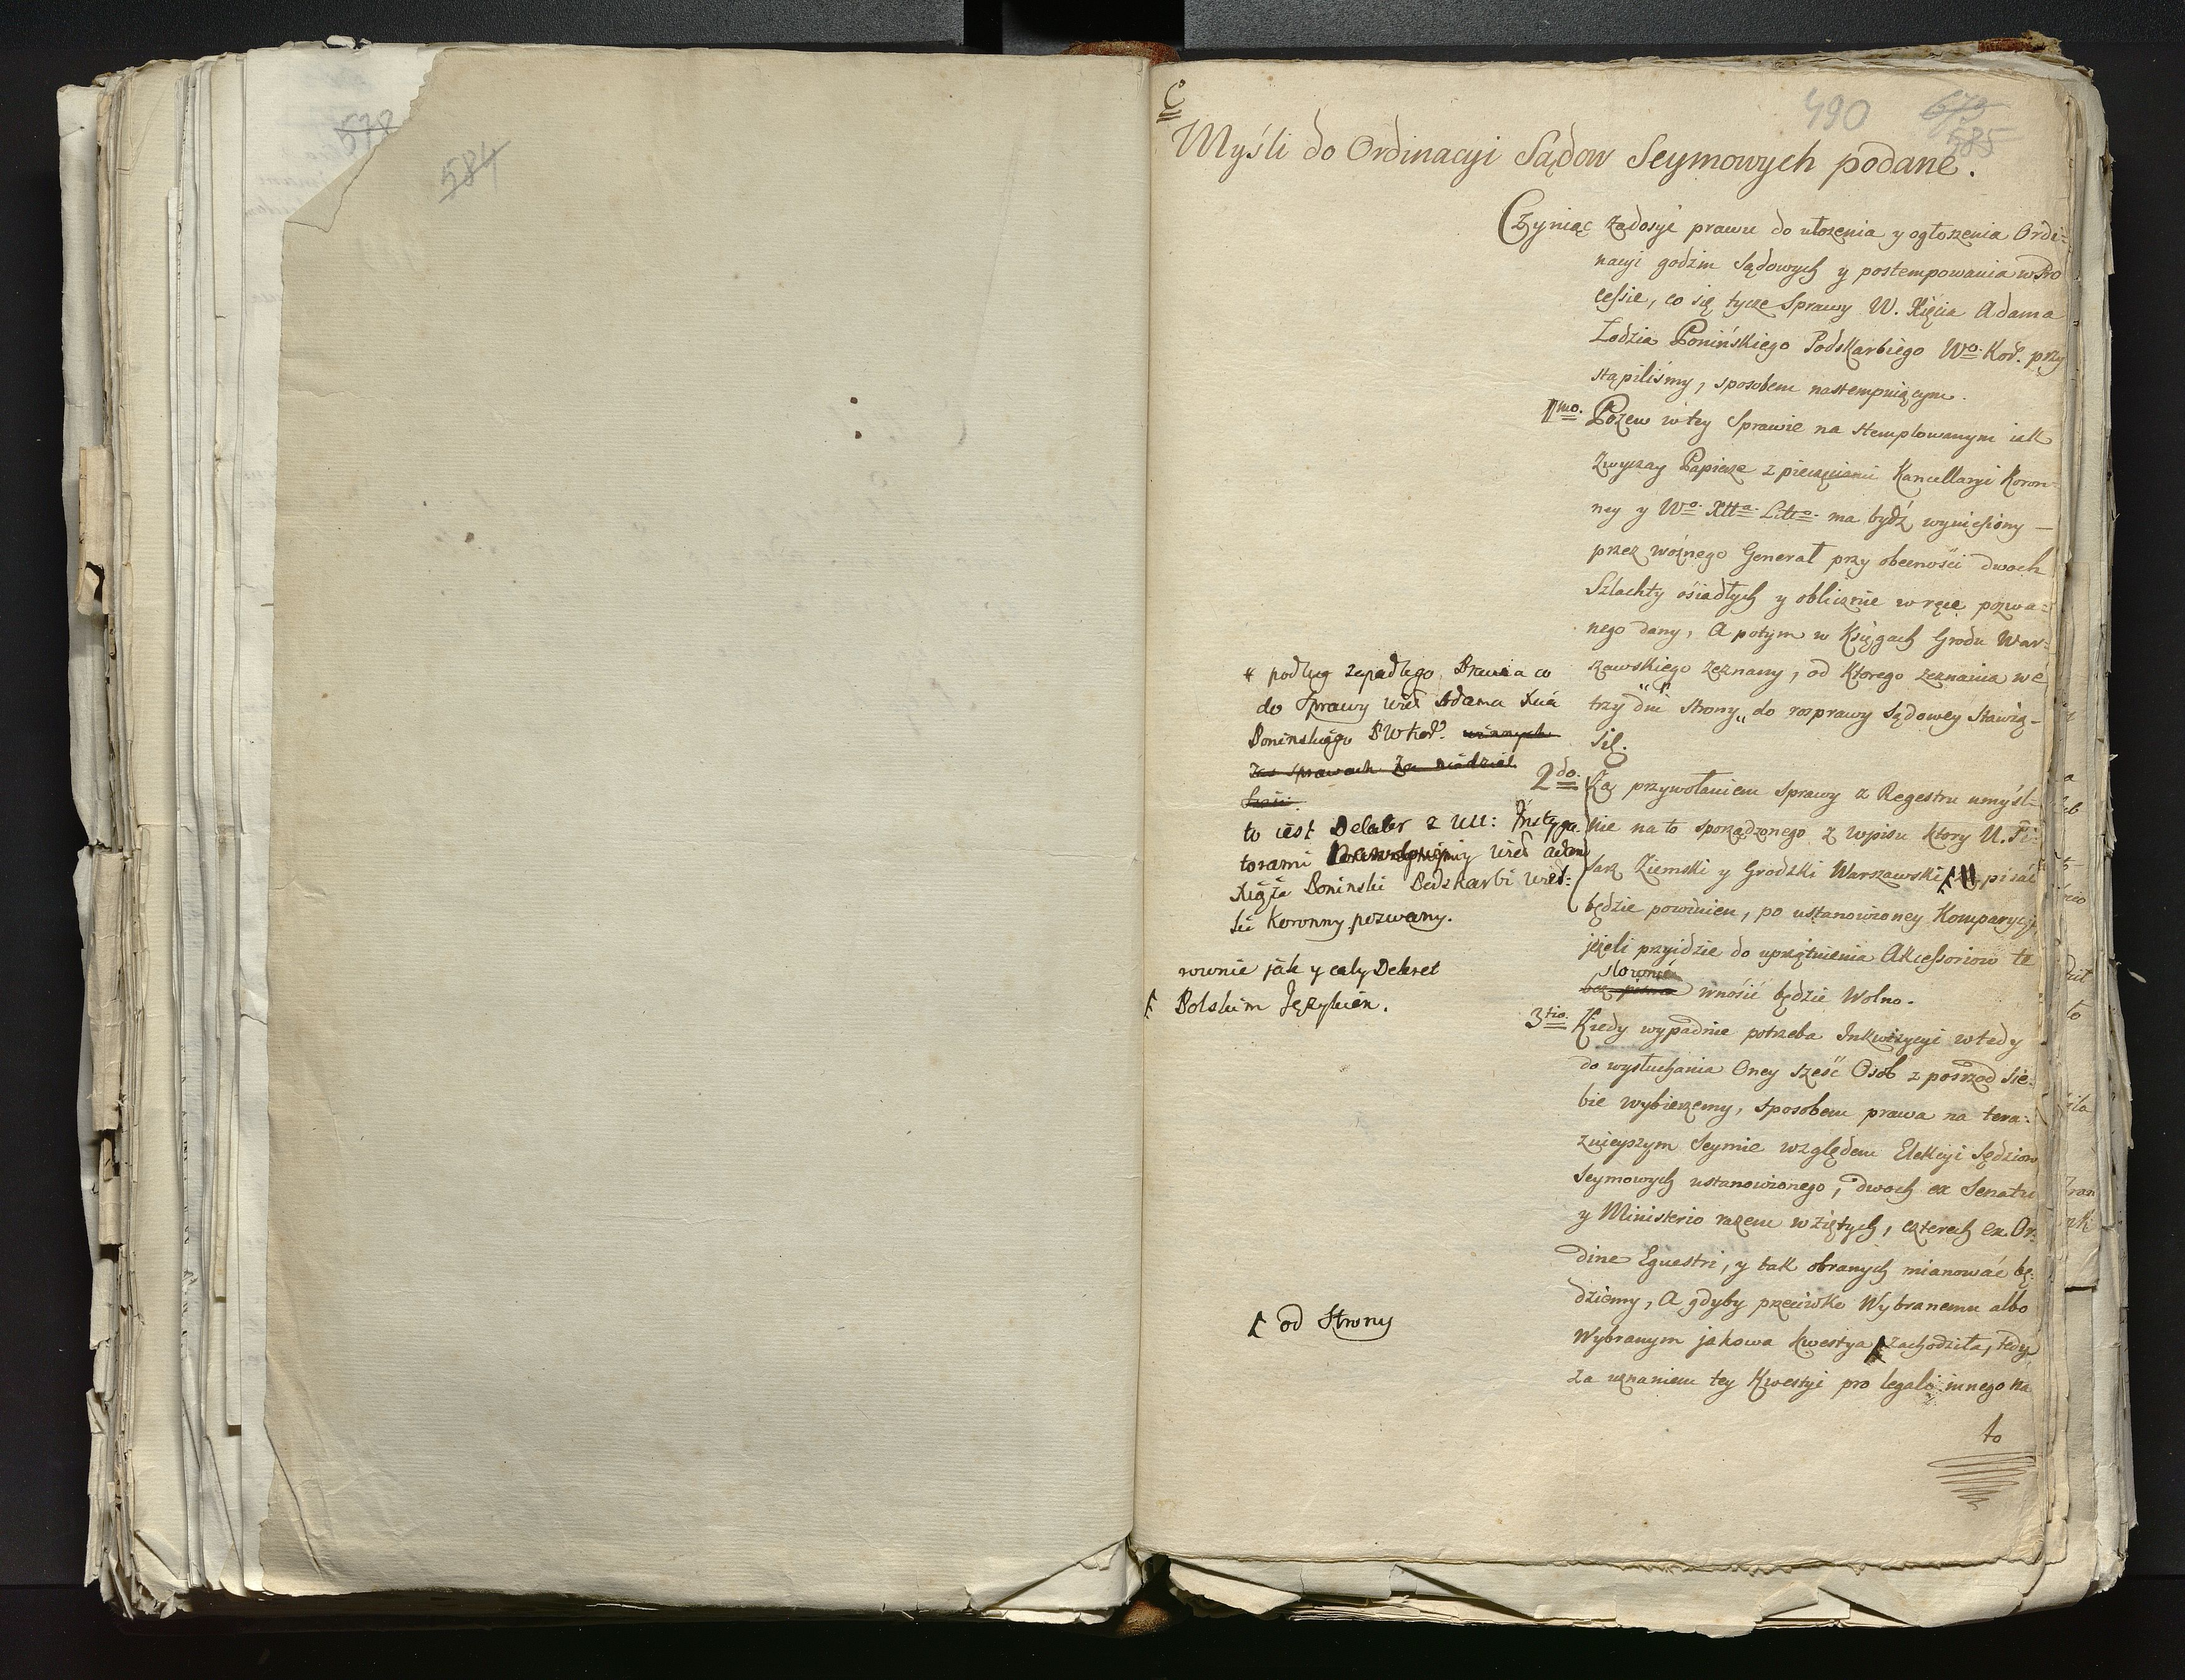 578
584
C
490
673
585
Myśli do Ordinacyi Sądow Seymowych podane.
Czyniąc zadosyć prawu do ułożenia y ogłoszenia Ordi-
nacyi godzin Sądowych y postempowania w Pro
cessie, co się tycze Sprawy W. Xięcia Adama
Lodzia Ponińskiego Podskarbiego Wo. Kor. przy
stąpiliśmy, sposobem nastempuiącym.
1mo. Pozew w tey Sprawie na stemplowanym iak
zwyczay Papierze z pieczęciami Kancellaryi Koron-
ney y Wo. Xtta. Litto. ma bydź wyniesiony
przez woźnego Generał przy obecności dwoch
Szlachty ósiadłych y oblicznie w ręce pozwa-
nego dany, A potym w Księgach Grodu War-
szawskiego zeznany, od ktorego zeznania we
trzy dni strony do rozprawy Sądowey stawią
się.
podług zapadłego Prawa co
do Sprawy Adama Xcia
Ponińskiego P W Kor.
to iest Delator z UU: Instyga-
torami
Xiąże Poninski Podskarbi Wiel-
ki Koronny pozwany.
2do. Za przywołaniem Sprawy z Regestru umyśl-
nie na to sporządzonego z wpisu ktory U. Pi-
sarz Ziemski y Grodzki Warszawski pisać
będzie powinien, po ustanowioney Komparycyi,
jeżeli przyidzie do uprzątnienia Akcessoriow te
słownie
bez pisma wnosić będzie Wolno.
rownie jak y cały Dekret
Polskim Językiem.
3tio. Kiedy wypadnie potrzeba Inkwizycyi wtedy
do wysłuchania Oney sześć Osob z posrzod sie-
bie wybierzemy, sposobem prawa na tera-
znieyszym Seymie względem Elekcyi Sędziow
Seymowych ustanowionego, dwoch ex Senatu
y Ministerio razem wziętych, czterech ex Or-
dine Equestri, y tak obranych mianować bę-
dziemy, A gdyby przeciwko Wybranemu albo
Wybranym jakowa kwestya zachodziła, tedy
od Strony
za uznaniem tey Kwestyi pro legali innego na
to